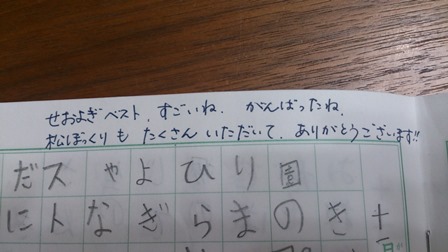 せおよぎベスト、すごいね。がんばったね。
松ぼっくりも たくさん いただいて、ありがとうございます!!
十一
き
圕の
りま
ひら
よぎ
ゃな
スト
だに